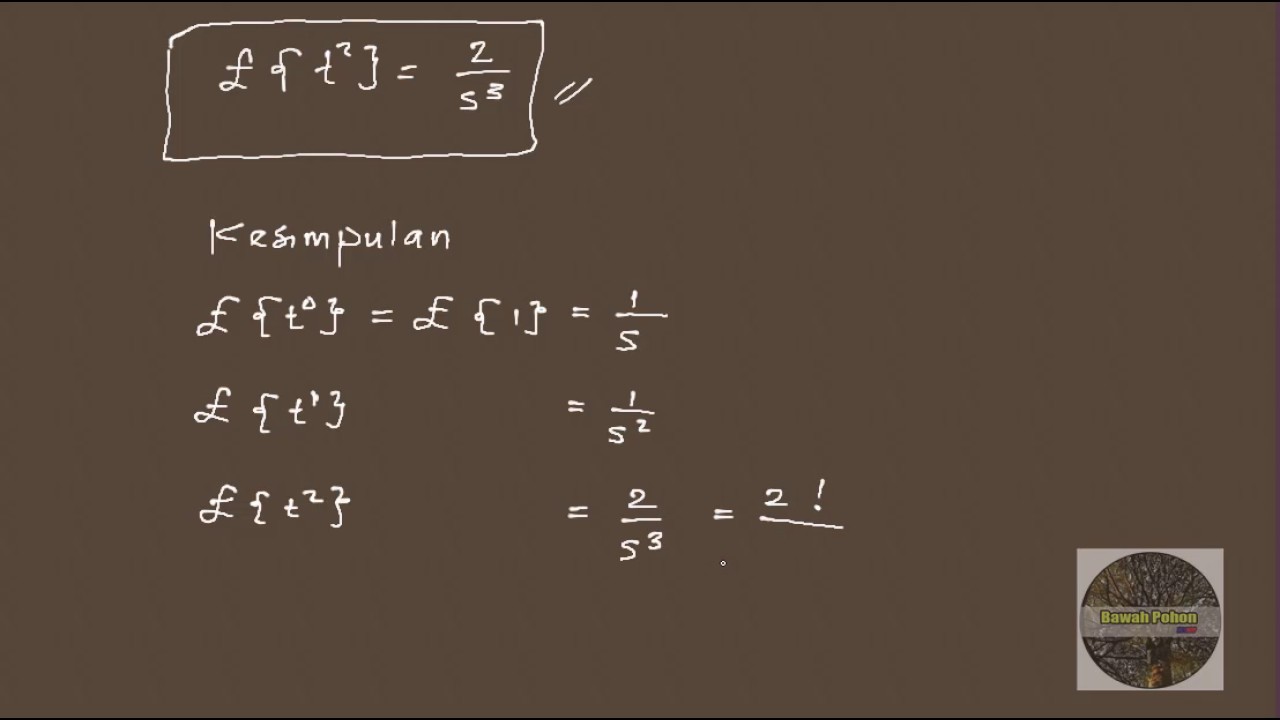 £{t²} = 2/s³ //
Kesimpulan
£{t⁰} = £{1} = 1/s
£{t¹} = 1/s²
£{t²} = 2/s³ = 2!
Bawah Pohon